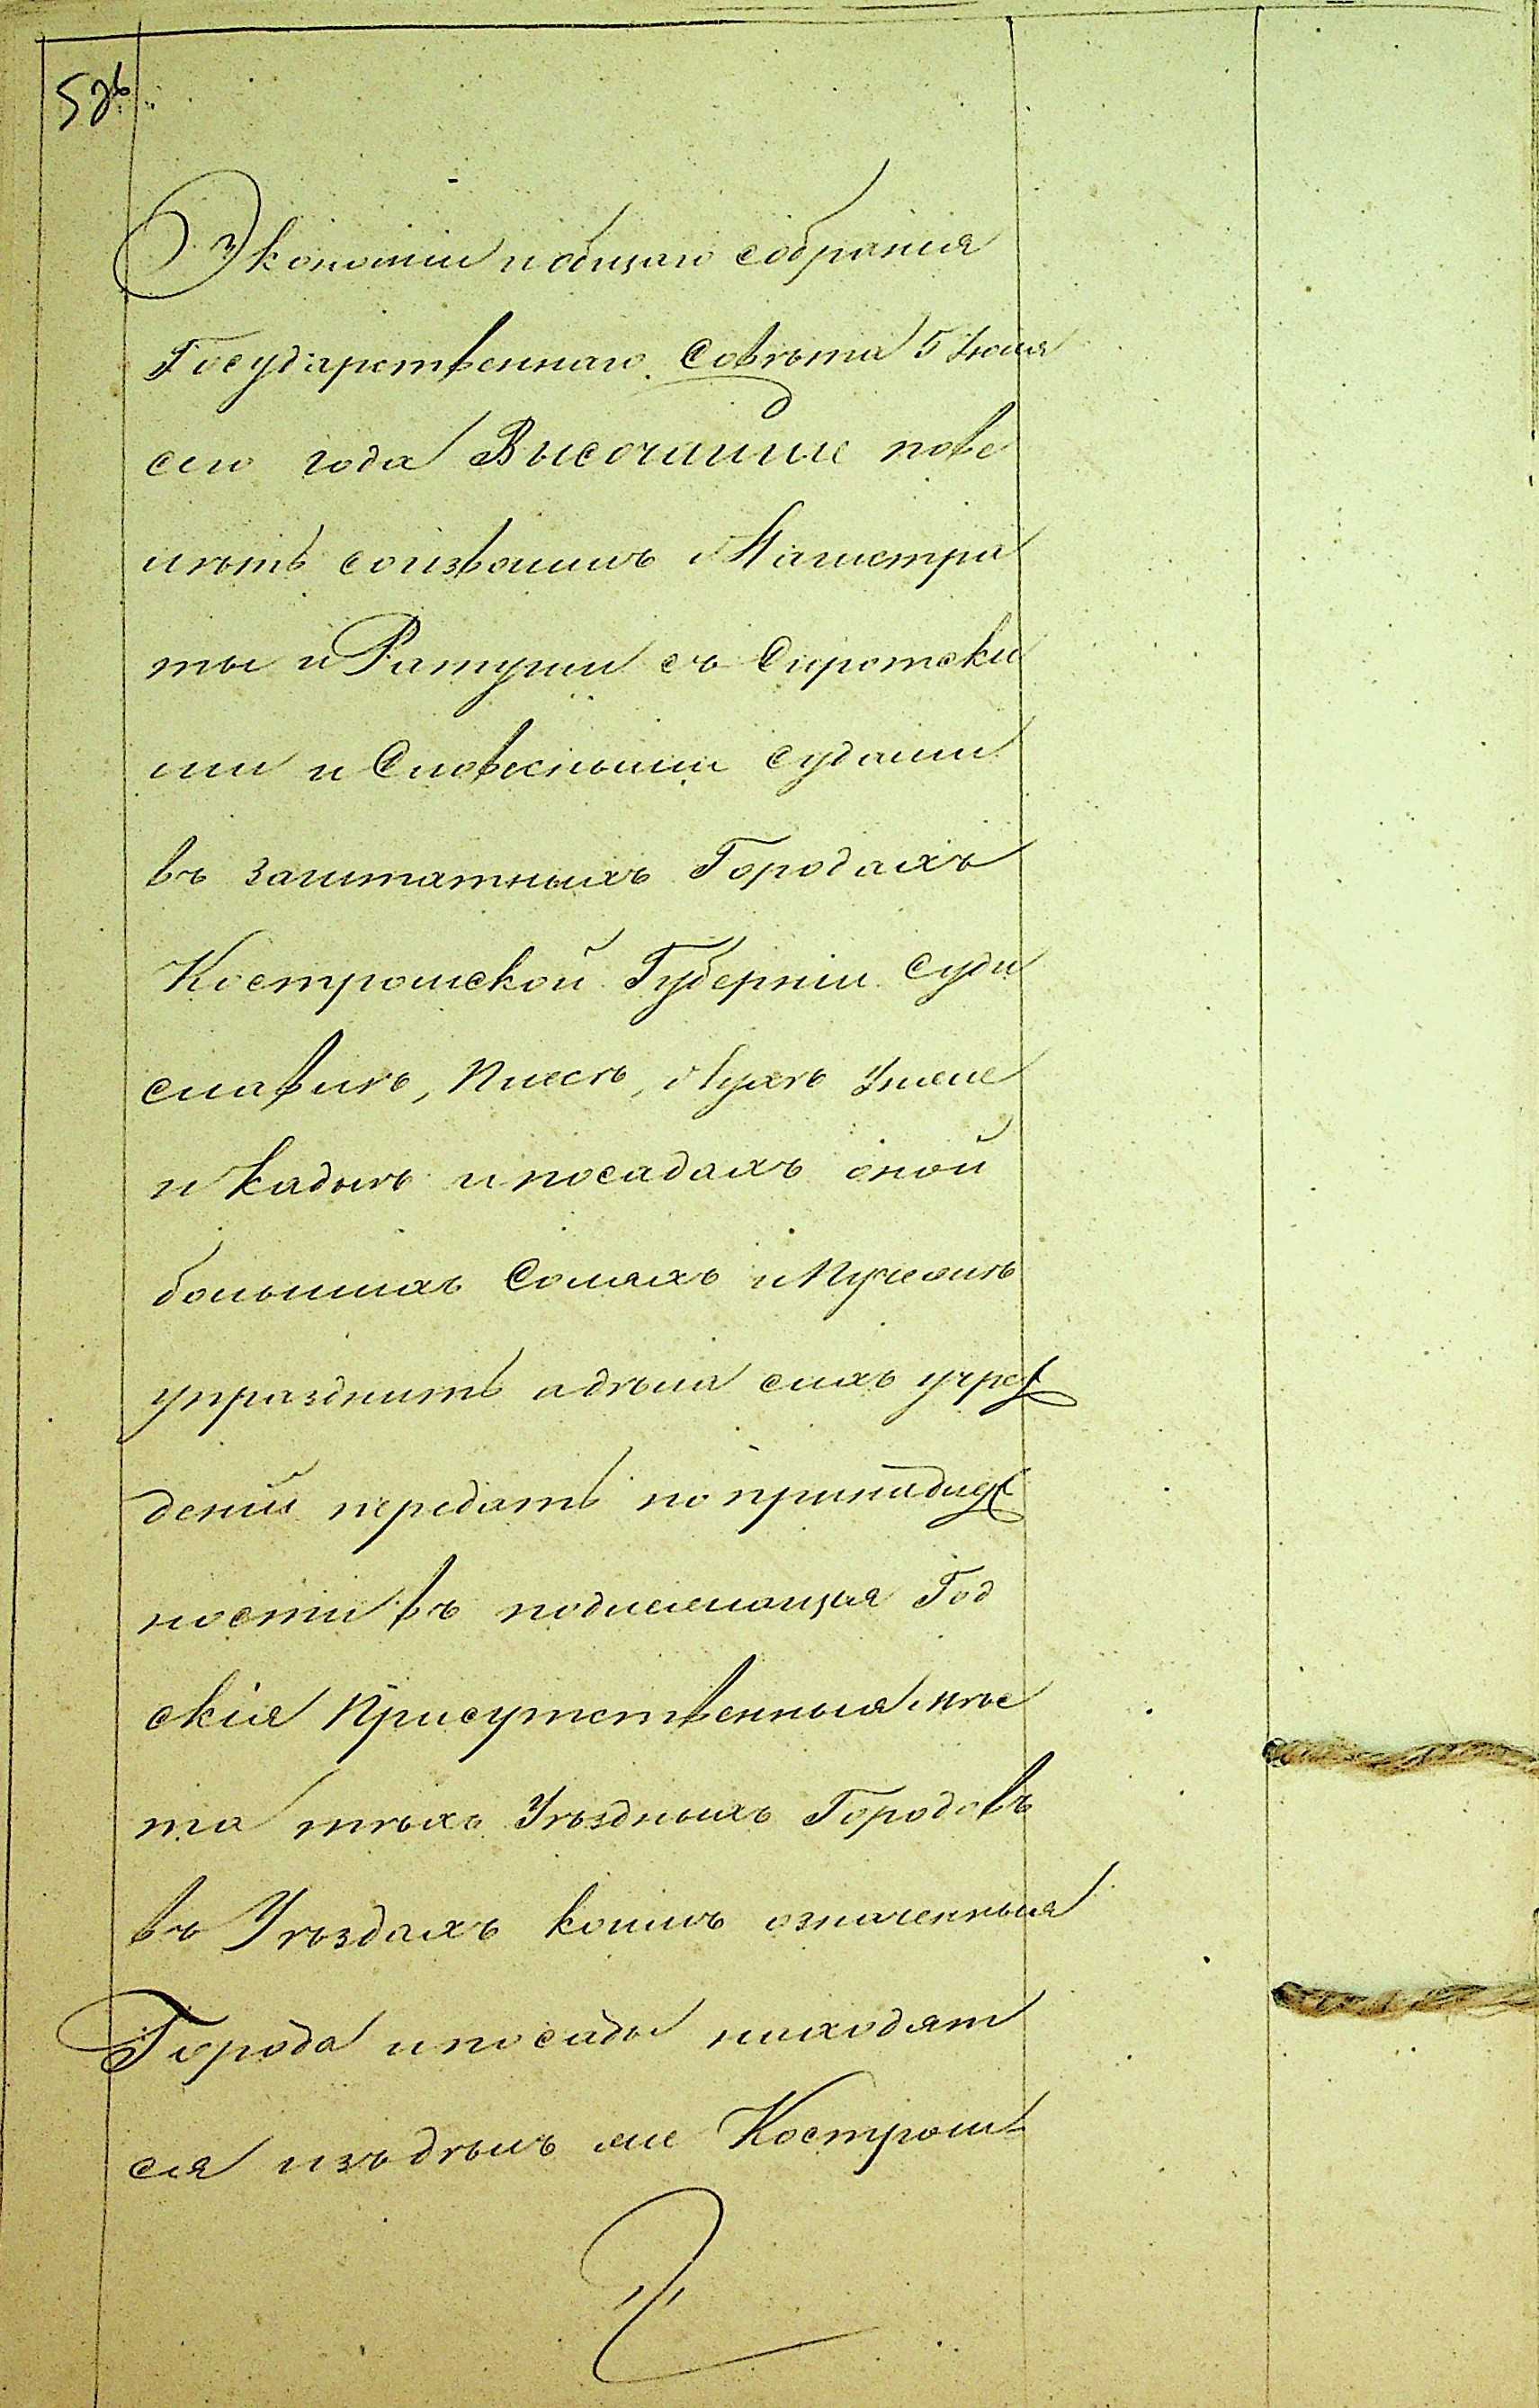 526
Экономіи и общаго собранія
Государственнаго Совѣта 5 Іюня
сего года Высочайше пове
лѣть соизволилъ Магистра
ты и Ратуши съ Сиротски
ми и Словесными судами
въ заштатныхъ Городахъ
Костромской Губерніи Суди
славлѣ, Плесѣ, Лухѣ Унже
и Кадыѣ и посадахъ оной
большихъ Соляхъ и Пучежѣ
упразднить а дѣла сихъ учреж
деній передать по принадлеж
ности въ подлежащія Год
скія Присутственныя мѣс
та тѣхъ Уѣздныхъ Городовъ
въ Уѣздахъ коихъ означенныя
Города и посады находят
ся изъ дѣлъ же Костром